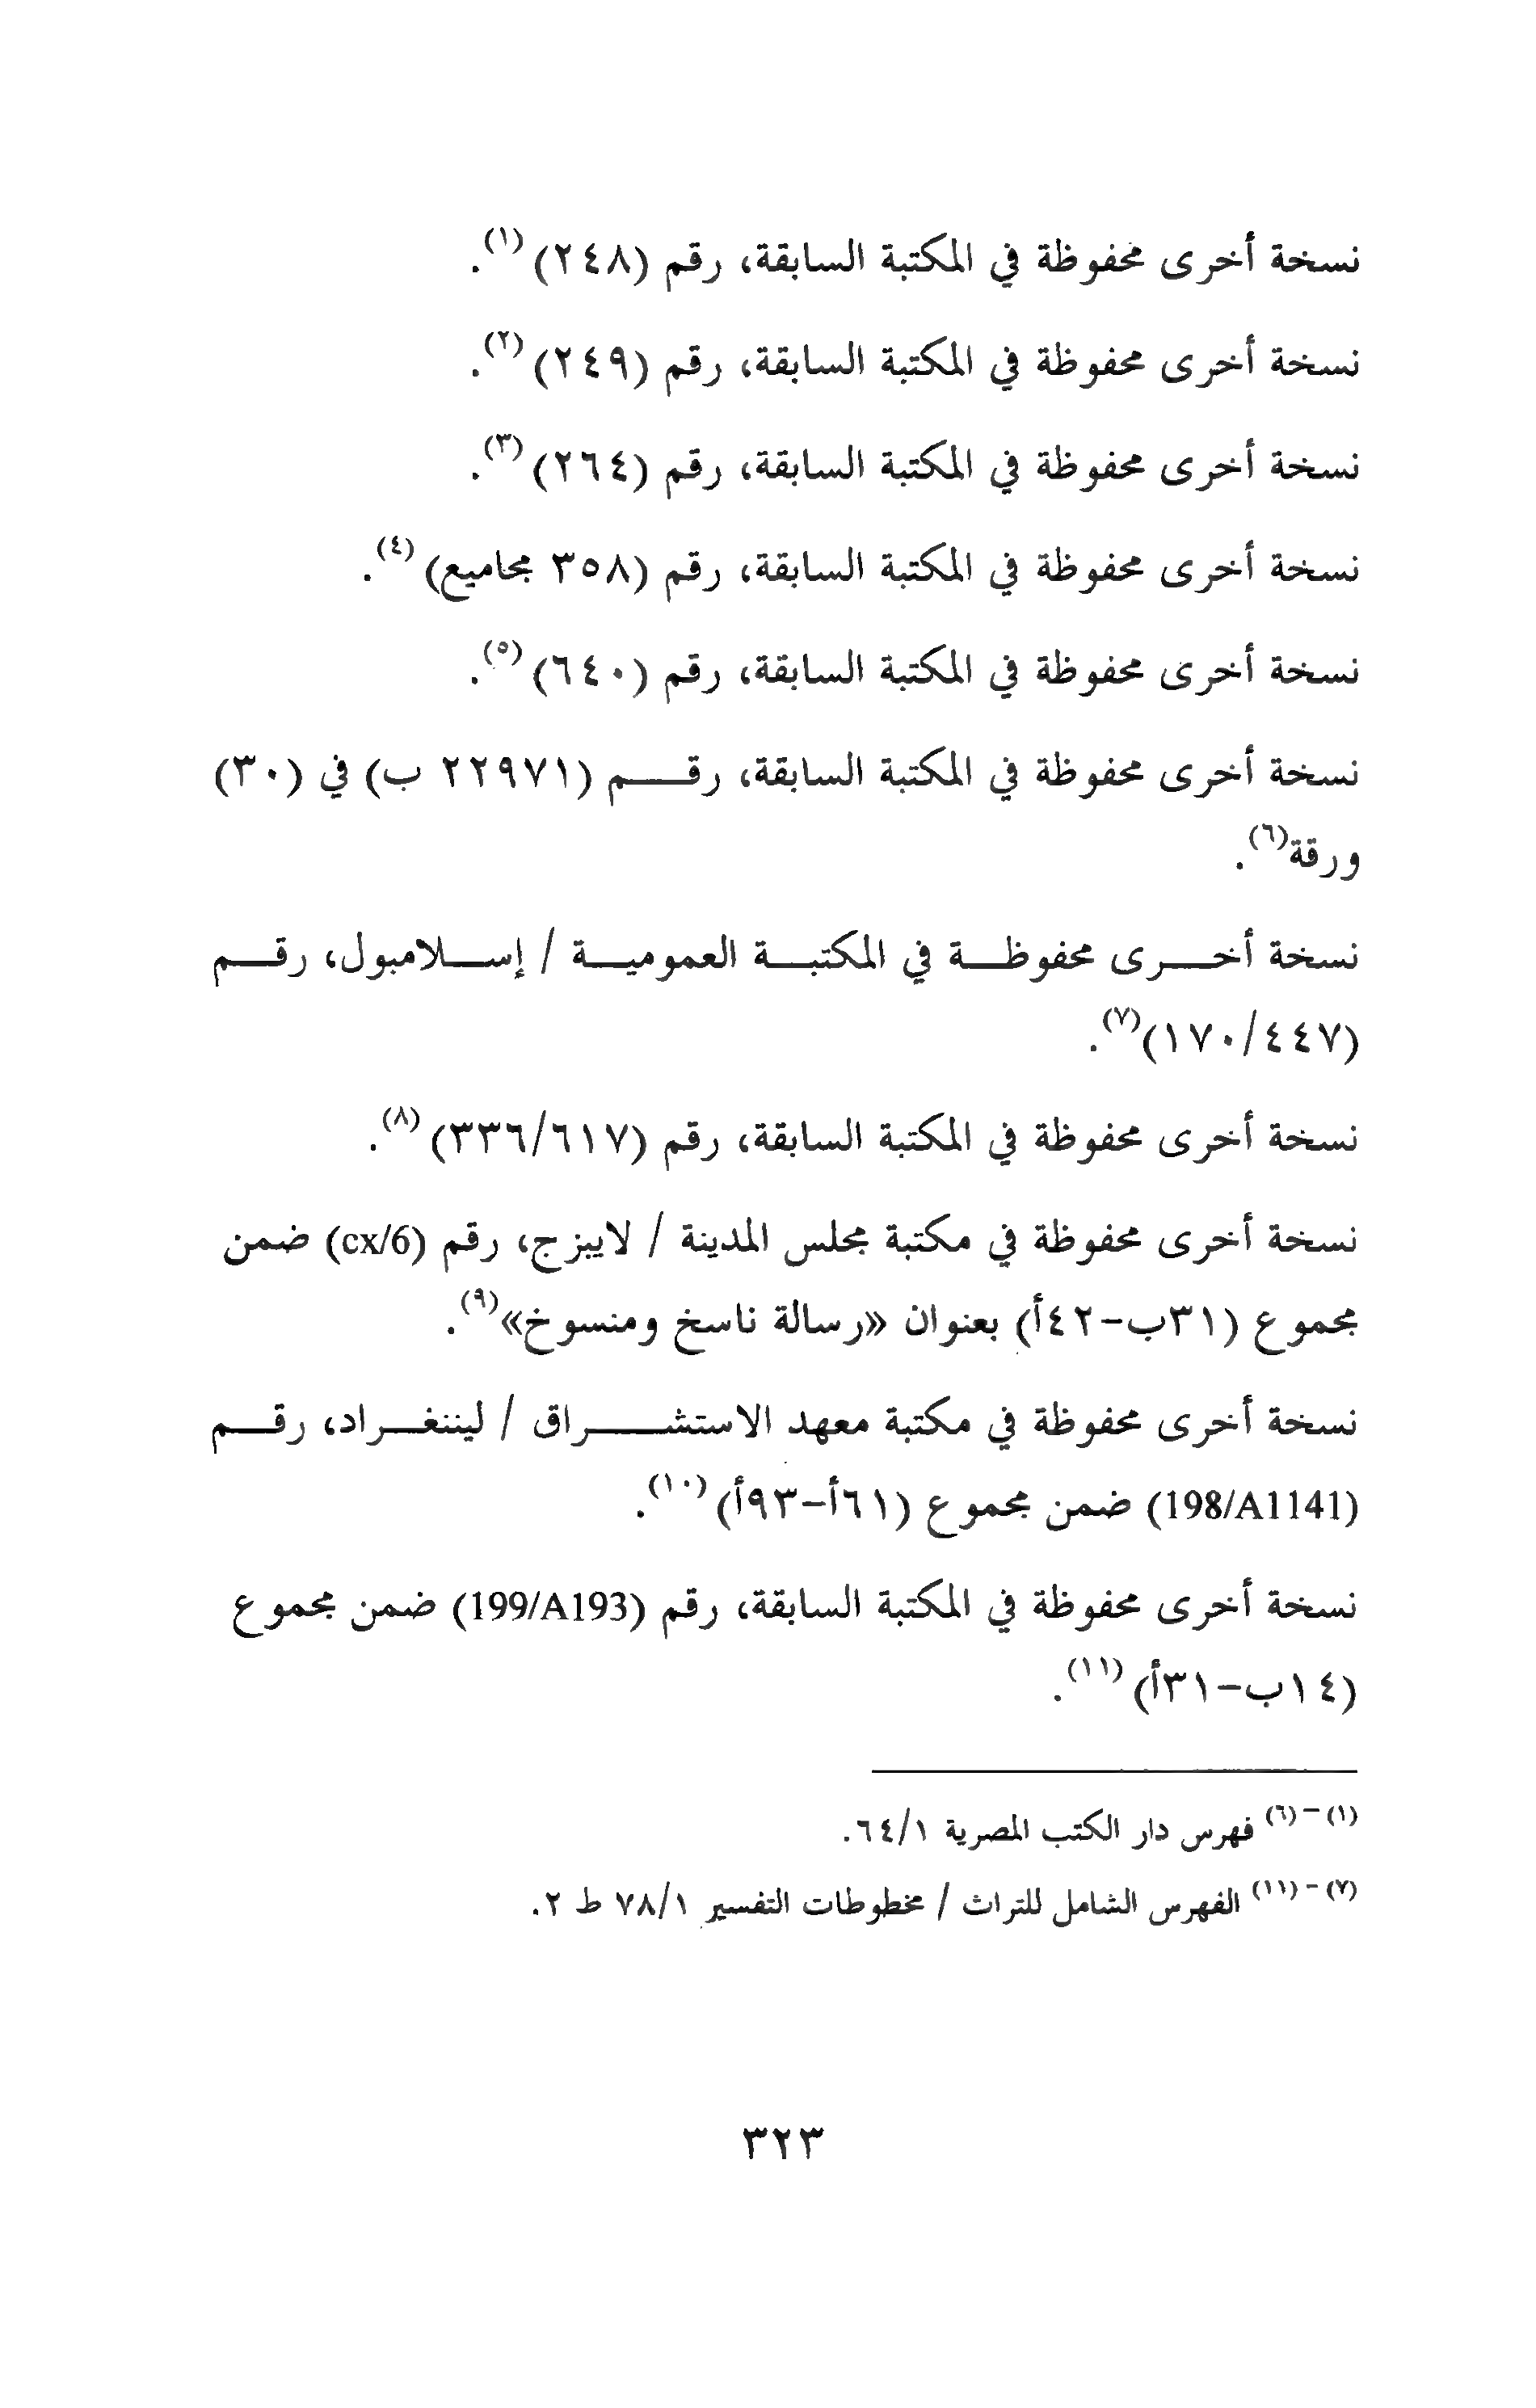 نسخة أخرى محفوظة في المكتبة السابقة، رقم (٢٤٨) (١).
نسخة أخرى محفوظة في المكتبة السابقة، رقم (٢٤٩) (٢).
نسخة أخرى محفوظة في المكتبة السابقة، رقم (٢٦٤) (٣).
نسخة أخرى محفوظة في المكتبة السابقة، رقم (٣٥٨ مجاميع) (٤).
نسخة أخرى محفوظة في المكتبة السابقة، رقم (٦٤٠) (٥).
نسخة أخرى محفوظة في المكتبة السابقة، رقم (٢٢٩٧١ ب) في (٣٠)
ورقة(٦).
نسخة أخرى محفوظة في المكتبة العمومية / إسلامبول، رقم
(١٧٠/٤٤٧)(٧).
نسخة أخرى محفوظة في المكتبة السابقة، رقم (٣٣٦/٦١٧) (٨).
نسخة أخرى محفوظة في مكتبة مجلس المدينة / لايبزج، رقم (cx/6) ضمن
مجموع (٣١ب-٤٢أ) بعنوان «رسالة ناسخ ومنسوخ»(٩).
نسخة أخرى محفوظة في مكتبة معهد الاستشراق / ليننغراد، رقم
(198/A1141) ضمن مجموع (٦١أ-٩٣أ) (١٠).
نسخة أخرى محفوظة في المكتبة السابقة، رقم (199/A193) ضمن مجموع
(١٤ب-٣١أ) (١١).
(١) - (٦) فهرس دار الكتب المصرية ٦٤/١.
(٧) - (١١) الفهرس الشامل للتراث / مخطوطات التفسير ٧٨/١ ط ٢.
٣٢٣